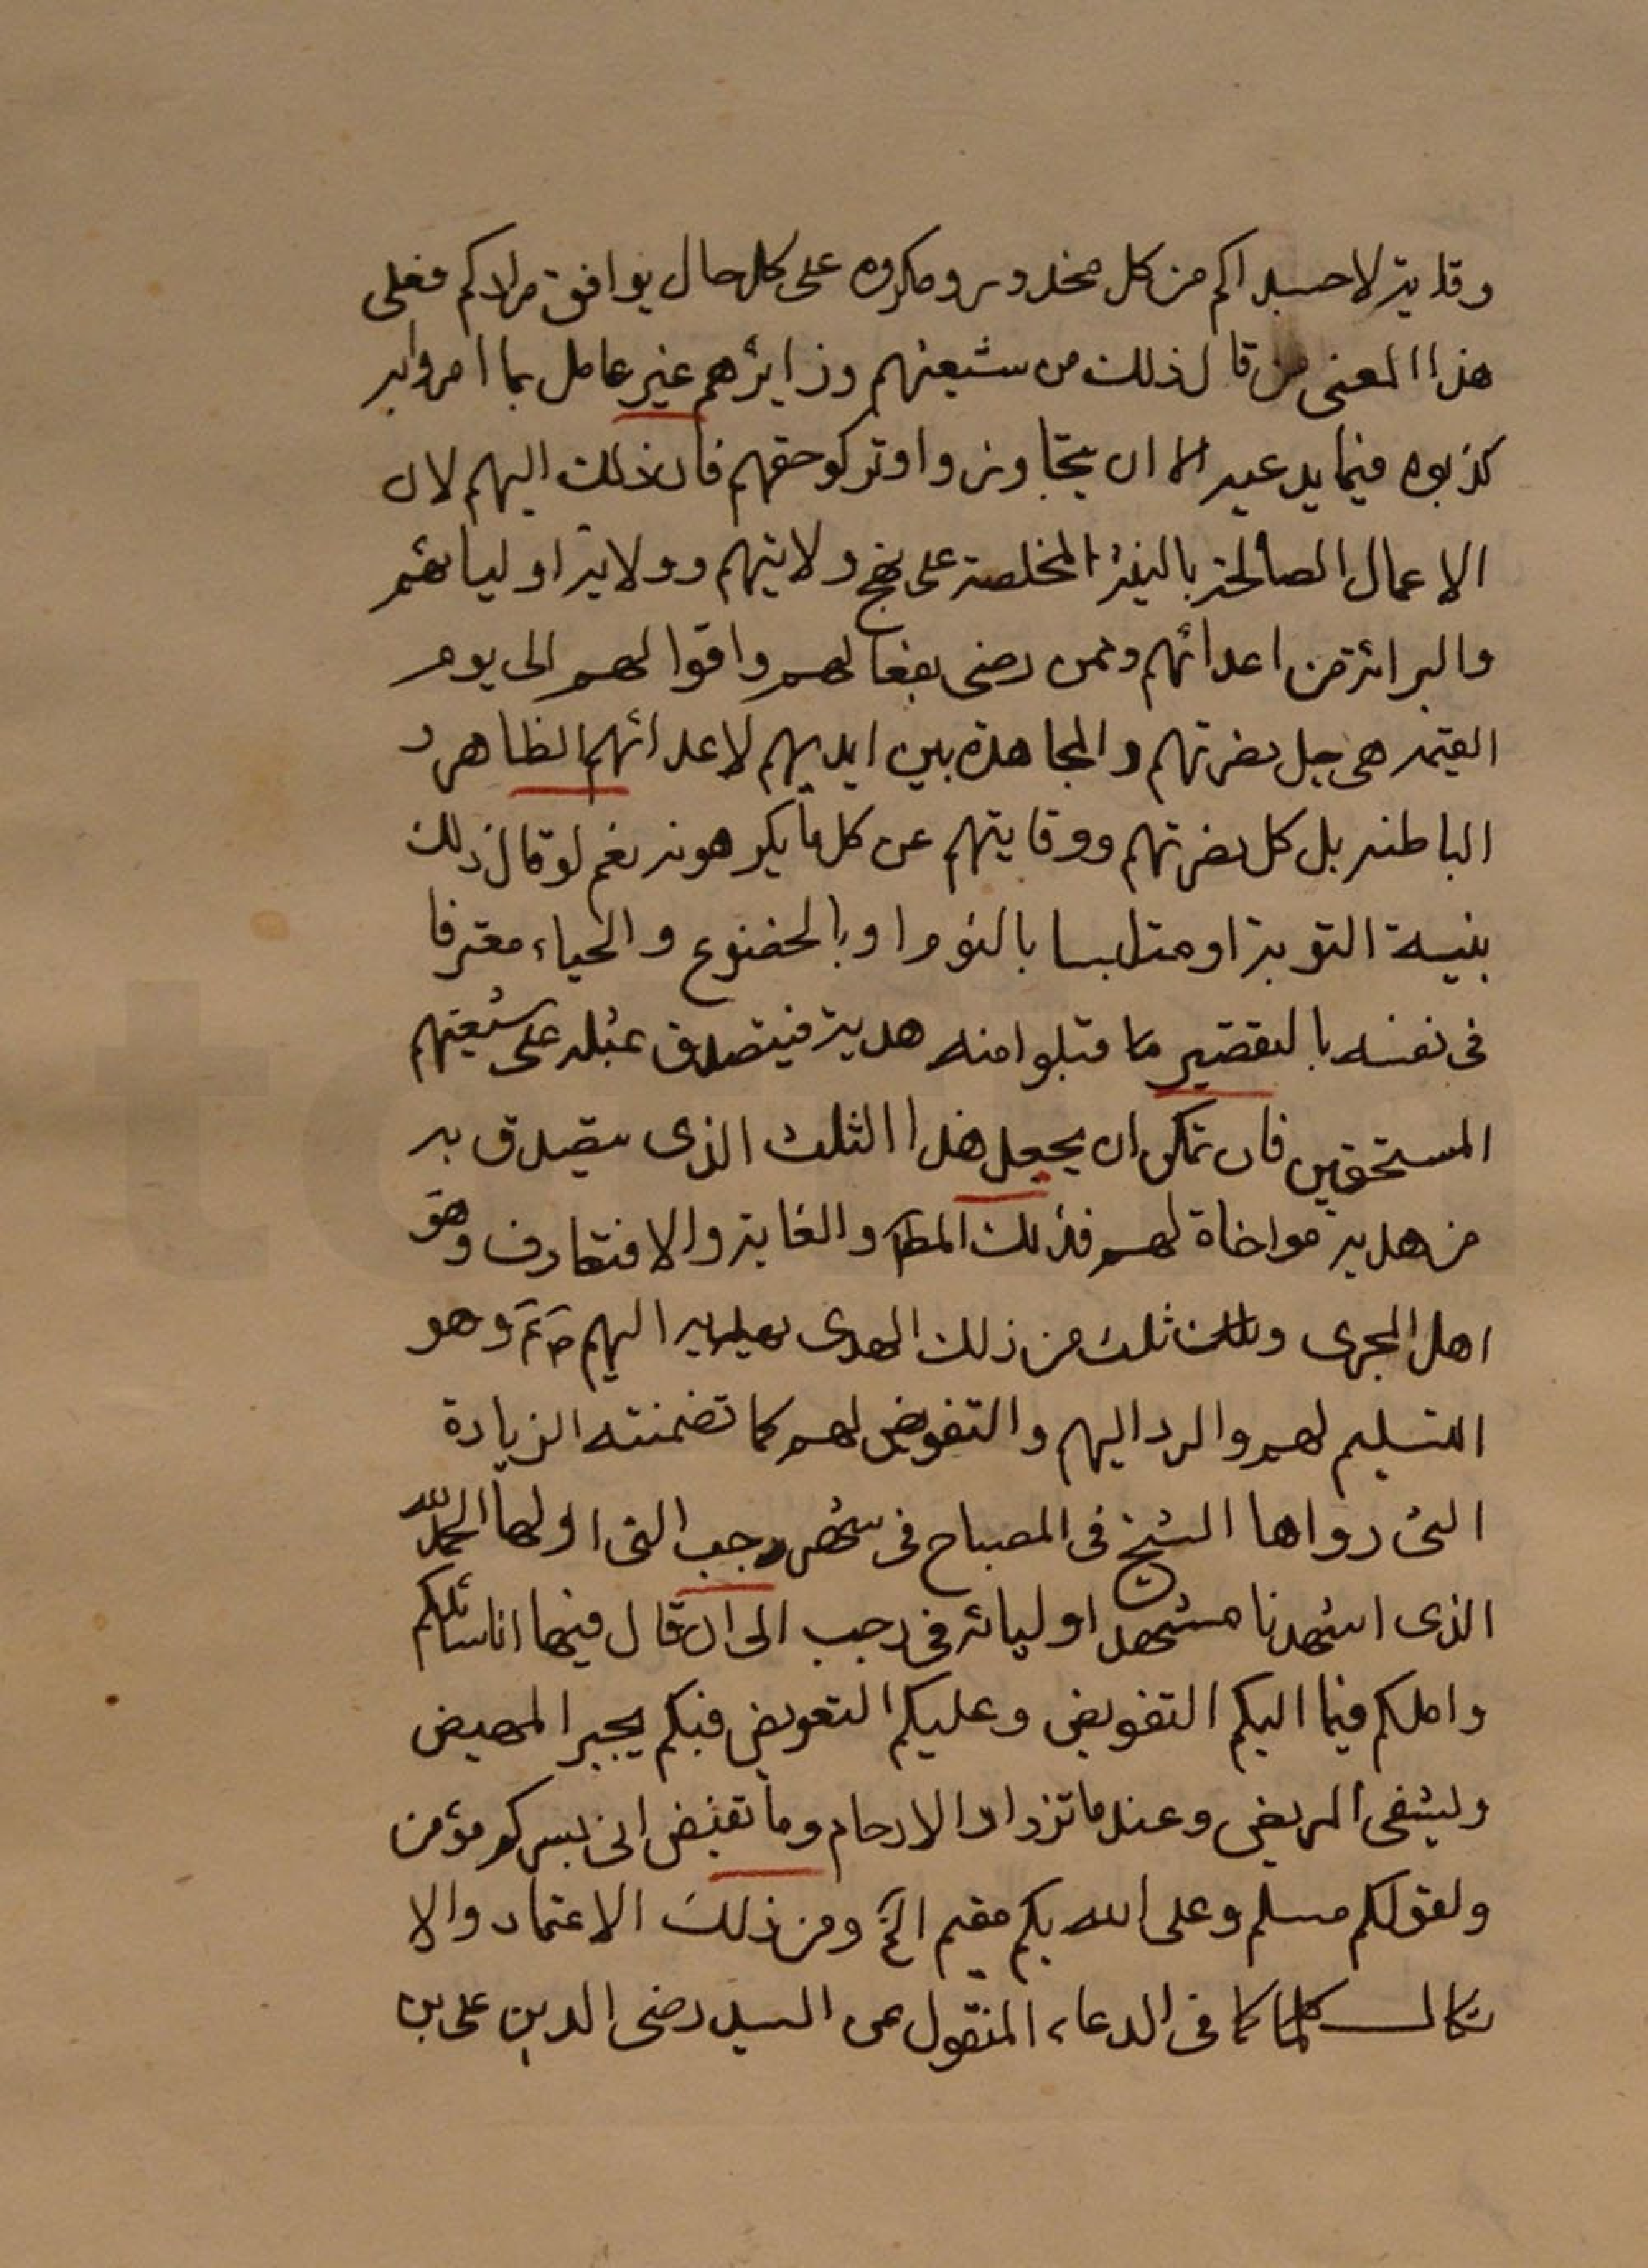 وقاية لاجسادكم من كل محذور ومكروه على كل حال يوافق مرادكم فعلى
هذا المعنى من قال ذلك من شيعتهم وزايرهم غير عامل بما امروا به
كذبوه فيما يدعيه الا ان يتجاوزوا وتركوا حقهم فان ذلك اليهم لان
الاعمال الصالحة بالنية المخلصة على نهج ولايتهم وولاية اوليائهم
والبرائة من اعدائهم وممن رضى بفعالهم واقوالهم الى يوم
القيمة هى جل نصرتهم والمجاهدة بين ايديهم لاعدائهم الظاهرة و
الباطنة بل كل نصرتهم ووقايتهم عن كل ما يكرهونه نعم لو قال ذلك
بنية التوبة او متلبسا بالنوم او بالخضوع والحياء معترفا
فى نفسه بالتقصير ما قبلوا منه هدية فيتصدق بمثله على شيعتهم
المستحقين فان تمكن ان يجعل هذا الثلث الذى يتصدق به
من هديه مواخاة لهم فذلك المط والغاية والا فتعارف وهو
اهل المجرى وثلث من ذلك الهدى يهديه اليهم وهو
التسليم لهم والرد اليهم والتفويض لهم كما تضمنته الزيارة
التى رواها الشيخ فى المصباح فى شهر رجب التى اولها الحمد لله
الذى اشهدنا مشهد اوليائه فى رجب الى ان قال فيها انا سائلكم
واملكم فيما اليكم التفويض وعليكم التعويض فبكم يجبر المهيض
ويشفى المريض وعند ما تزداد الارحام وما تغيض انى بسركم مؤمن
ولقولكم مسلم وعلى الله بكم مقسم الخ ومن ذلك الاعتماد والا
تكال كما فى الدعاء المنقول عن السيد رضى الدين على بن